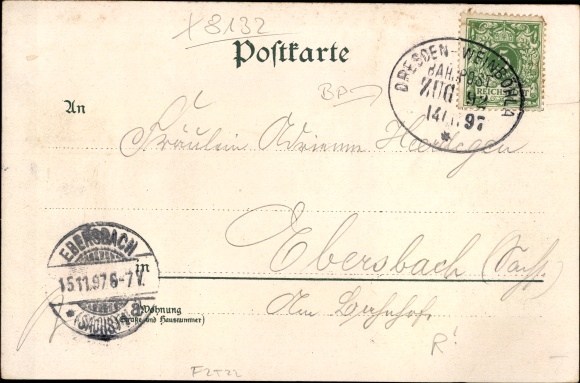 X8132
Postkarte
DRESDEN-WEINBÖHLA
BAHNPOST
ZUG 92
14 11 97
REICHSPOST
BP
An
Fräulein Adrienne Heerlegen
Ebersbach (Sachs.)
in
Am Bahnhof.
Wohnung
(Straße und Hausnummer)
EBERSBACH
15.11.97 6-7V.
* (SACHSEN) a
R!
FZTZZ